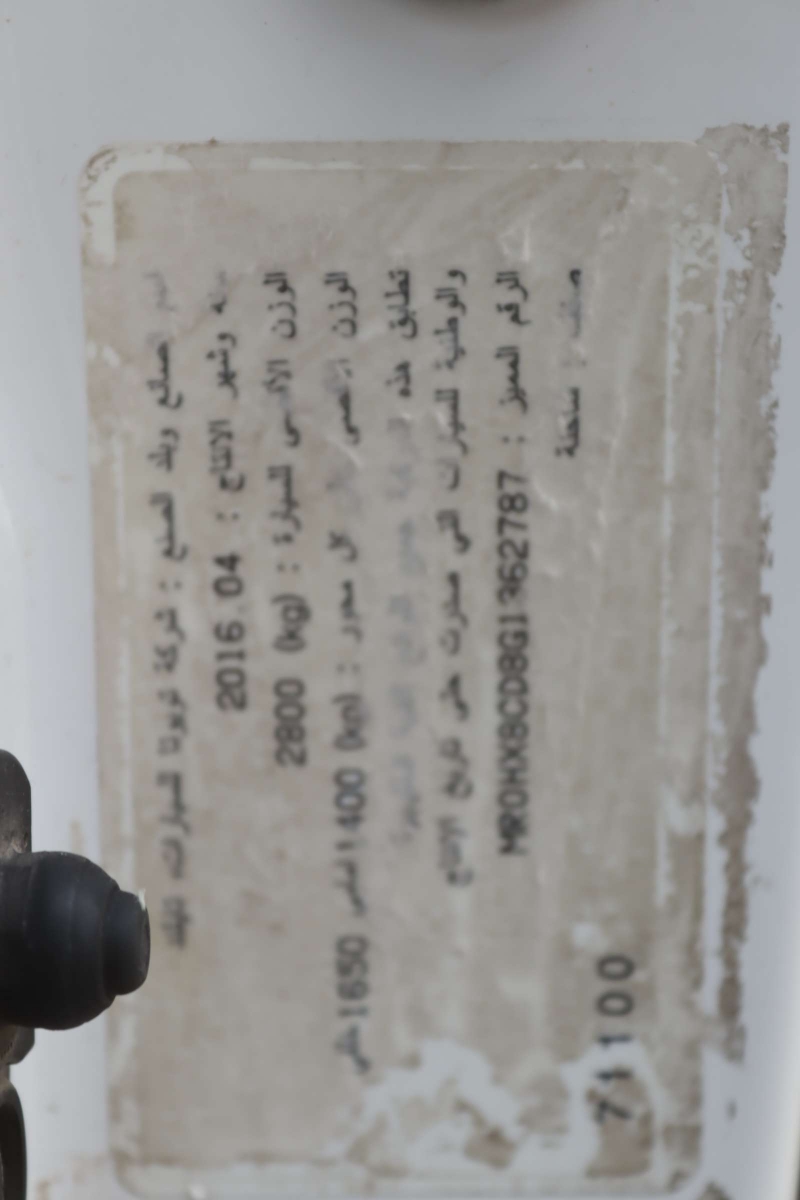 اسم الصانع وبلد الصنع : شركة تويوتا للسيارات، تايلاند
سنة وشهر الانتاج : 2016.04
الوزن الأقصى للسيارة : (kg) 2800
الوزن الأقصى كل محور : (kg) 1400 امامي 1650 خلفي
تطابق هذه
والوطنية للسيارات التي صدرت حتى تاريخ الإنتاج
الرقم المميز : MR0HX8CD8G1362787
صنف : شاحنة
71100